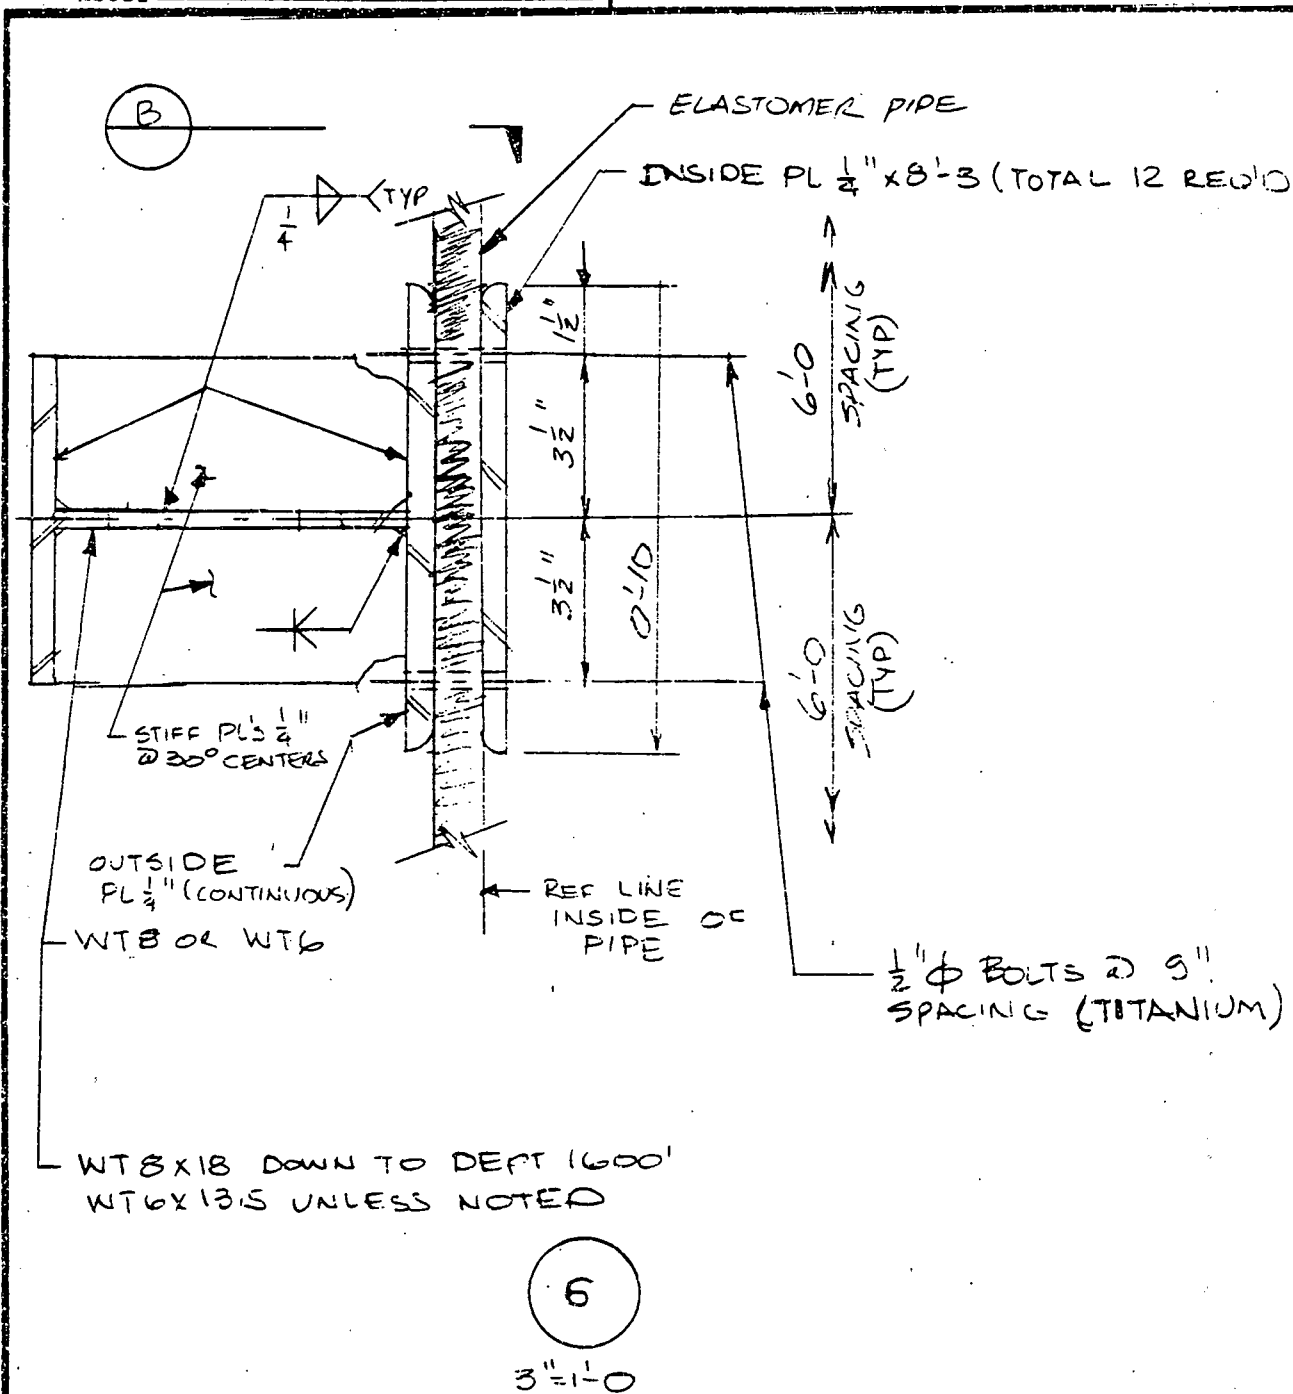 B
ELASTOMER PIPE
INSIDE PL 1/4" x 8'-3 (TOTAL 12 REQ'D
TYP
1/4
1 1/2"
3 1/2"
3 1/2"
0'-10
6'-0
SPACING
(TYP)
6'-0
SPACING
(TYP)
STIFF PL'S 1/4"
@ 30° CENTERS
OUTSIDE
PL 1/4" (CONTINUOUS)
WT8 OR WT6
REF LINE
INSIDE OF
PIPE
1/2" φ BOLTS @ 9"
SPACING (TITANIUM)
WT 8x18 DOWN TO DEPT 1600'
WT 6x13.5 UNLESS NOTED
6
3"=1'-0